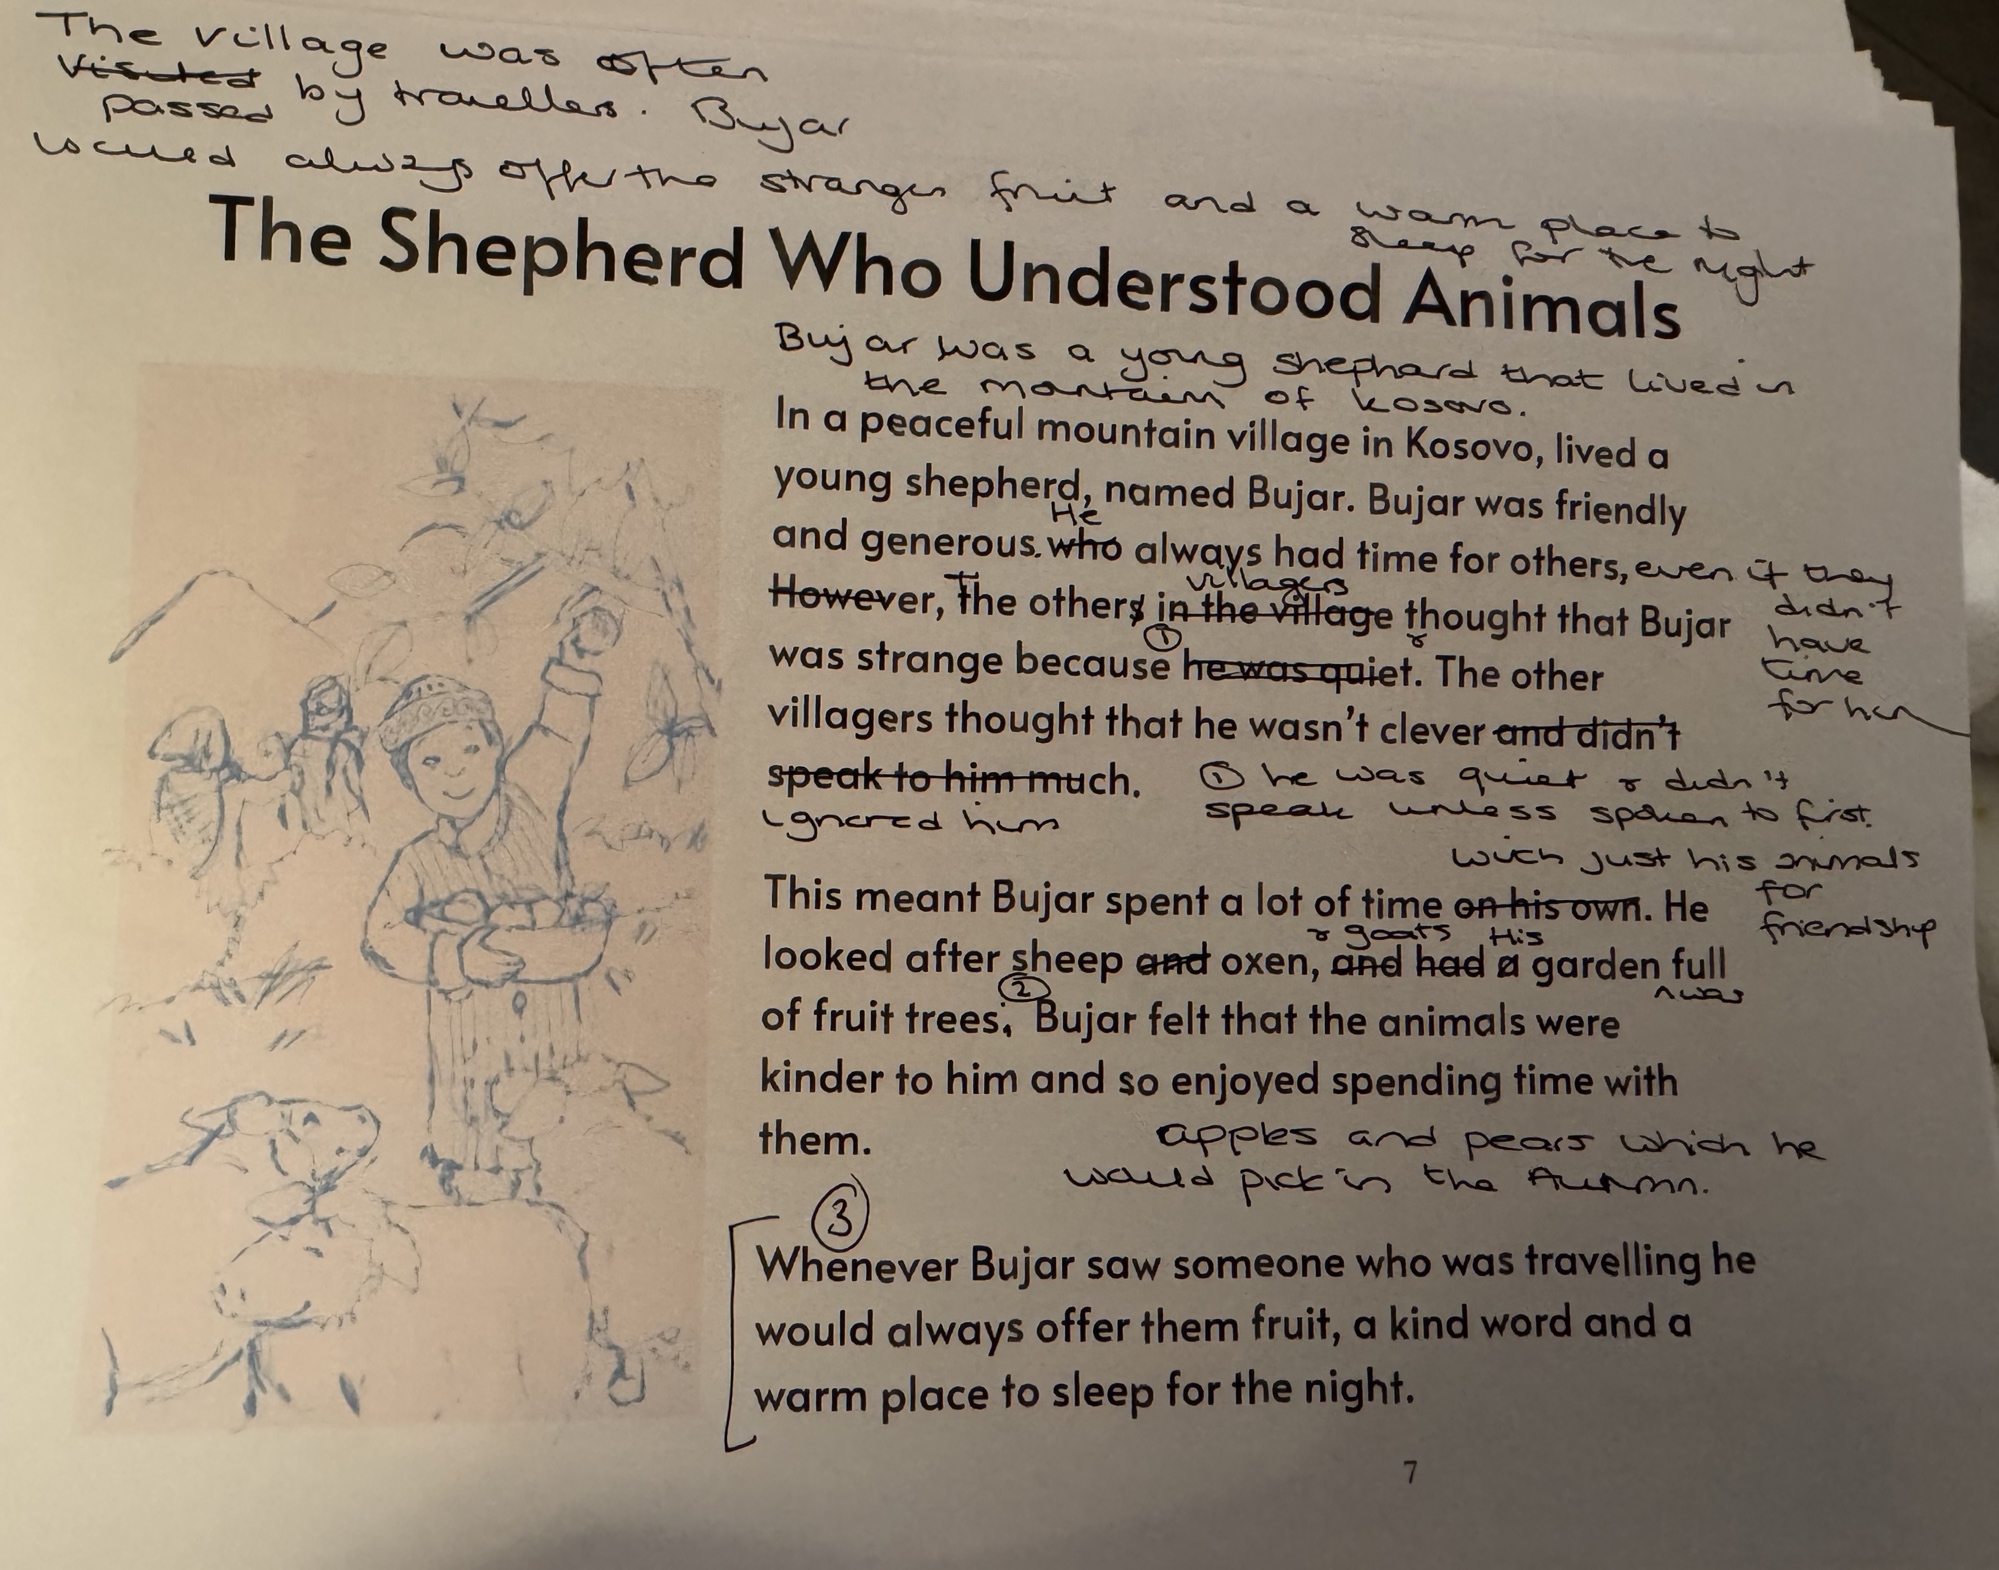 The village was often
visited by travellers. Bujar
passed
would always offer the stranger fruit and a warm place to
sleep for the night
The Shepherd Who Understood Animals
Bujar was a young shephard that lived in
the mountain of Kosovo.
In a peaceful mountain village in Kosovo, lived a
young shepherd, named Bujar. Bujar was friendly
He
and generous. who always had time for others, even if they
didn't
have
time
for him
villagers
However, The others in the village thought that Bujar
①
&
was strange because he was quiet. The other
villagers thought that he wasn't clever and didn't
speak to him much. ① he was quiet & didn't
ignored him speak unless spoken to first.
with just his animals
This meant Bujar spent a lot of time on his own. He
for
friendship
& goats His
looked after sheep and oxen, and had a garden full
^ was
②
of fruit trees; Bujar felt that the animals were
kinder to him and so enjoyed spending time with
them. apples and pears which he
would pick in the Autumn.
③
Whenever Bujar saw someone who was travelling he
would always offer them fruit, a kind word and a
warm place to sleep for the night.
7